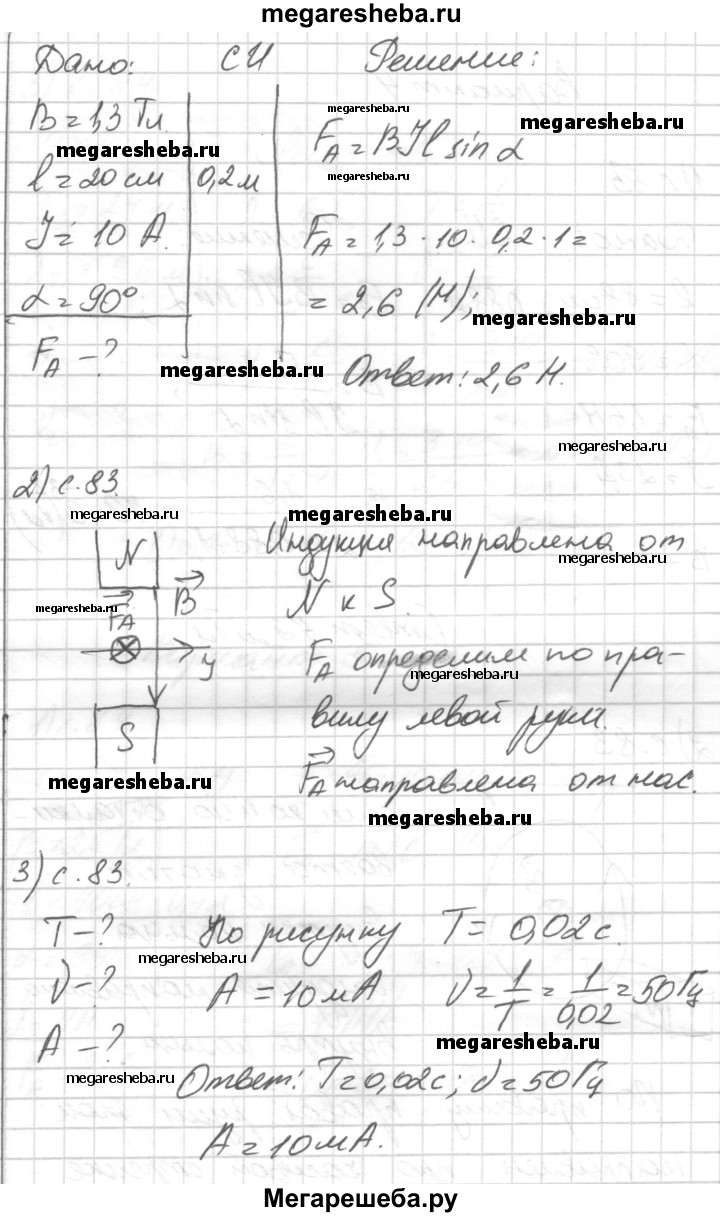 megaresheba.ru
Дано: СИ Решение:
B = 1,3 Тл.
megaresheba.ru
megaresheba.ru
F_A = BIl sin α
megaresheba.ru
l = 20 см 0,2 м
megaresheba.ru
I = 10 А.
F_A = 1,3 · 10 · 0,2 · 1 =
α = 90°
= 2,6 (Н);
megaresheba.ru
F_A – ?
megaresheba.ru
Ответ: 2,6 Н.
megaresheba.ru
2) с. 83.
megaresheba.ru
megaresheba.ru
N
Индукция направлена от
megaresheba.ru
megaresheba.ru
F_A
B
N к S.
y
F_A определим по пра-
megaresheba.ru
S
вилу левой руки.
megaresheba.ru
F_A направлена от нас.
megaresheba.ru
3) с. 83.
T – ? По рисунку T = 0,02 с.
megaresheba.ru
ν – ? A = 10 мА ν = 1/T = 1/0,02 = 50 Гц
A – ?
megaresheba.ru
megaresheba.ru
Ответ: T = 0,02 с; ν = 50 Гц
A = 10 мА.
Мегарешеба.ру